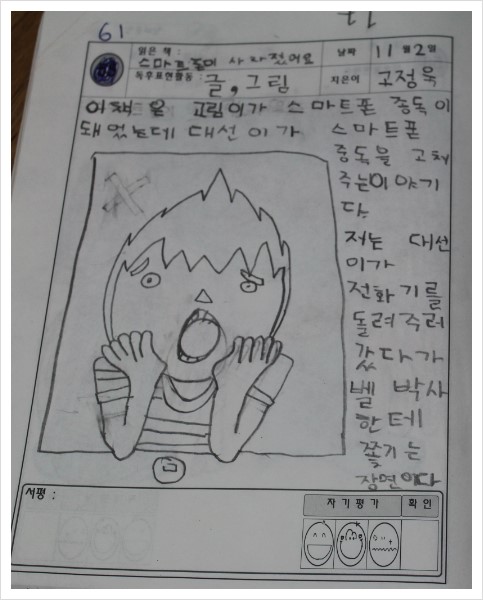 61
읽은 책 : 스마트폰이 사라졌어요
날짜 11월 2일
독후표현활동 : 글, 그림
지은이 고정욱
이책은 교림이가 스마트폰 중독이
돼었는데 대선이가 스마트폰
중독을 고쳐
주는이야기
다.
저는 대선
이가
전화기를
돌려주러
갔다가
벨 박사
한테
쫓기는
장면이다
서평 :
자기평가 확인